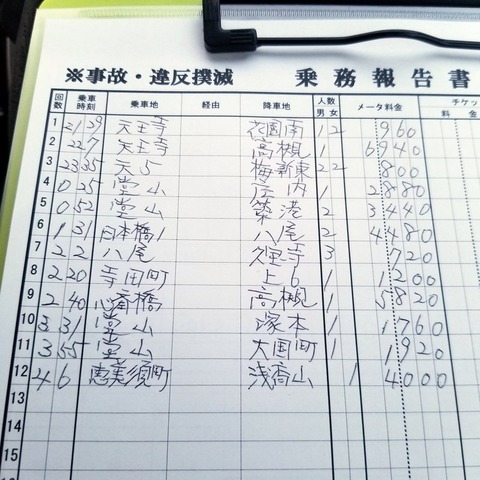 ※事故・違反撲滅 乗務報告書
回数 乗車時刻 乗車地 経由 降車地 人数 男 女 メータ料金 チケッ 料金
1 21 29 天王寺 花園南 1 2 960
2 22 7 天王寺 高槻 1 6940
3 23 35 天5 梅新東 2 2 800
4 0 25 堂山 庄内 1 2880
5 0 52 堂山 築港 2 3440
6 1 31 日本橋1 八尾 2 4480
7 2 2 八尾 3 720
8 2 20 寺田町 上6 1 1200
9 2 40 心斎橋 高槻 1 5820
10 3 31 堂山 塚本 1 1760
11 3 55 堂山 大国町 1 1920
12 4 6 恵美須町 浅香山 1 4000
13
14
15